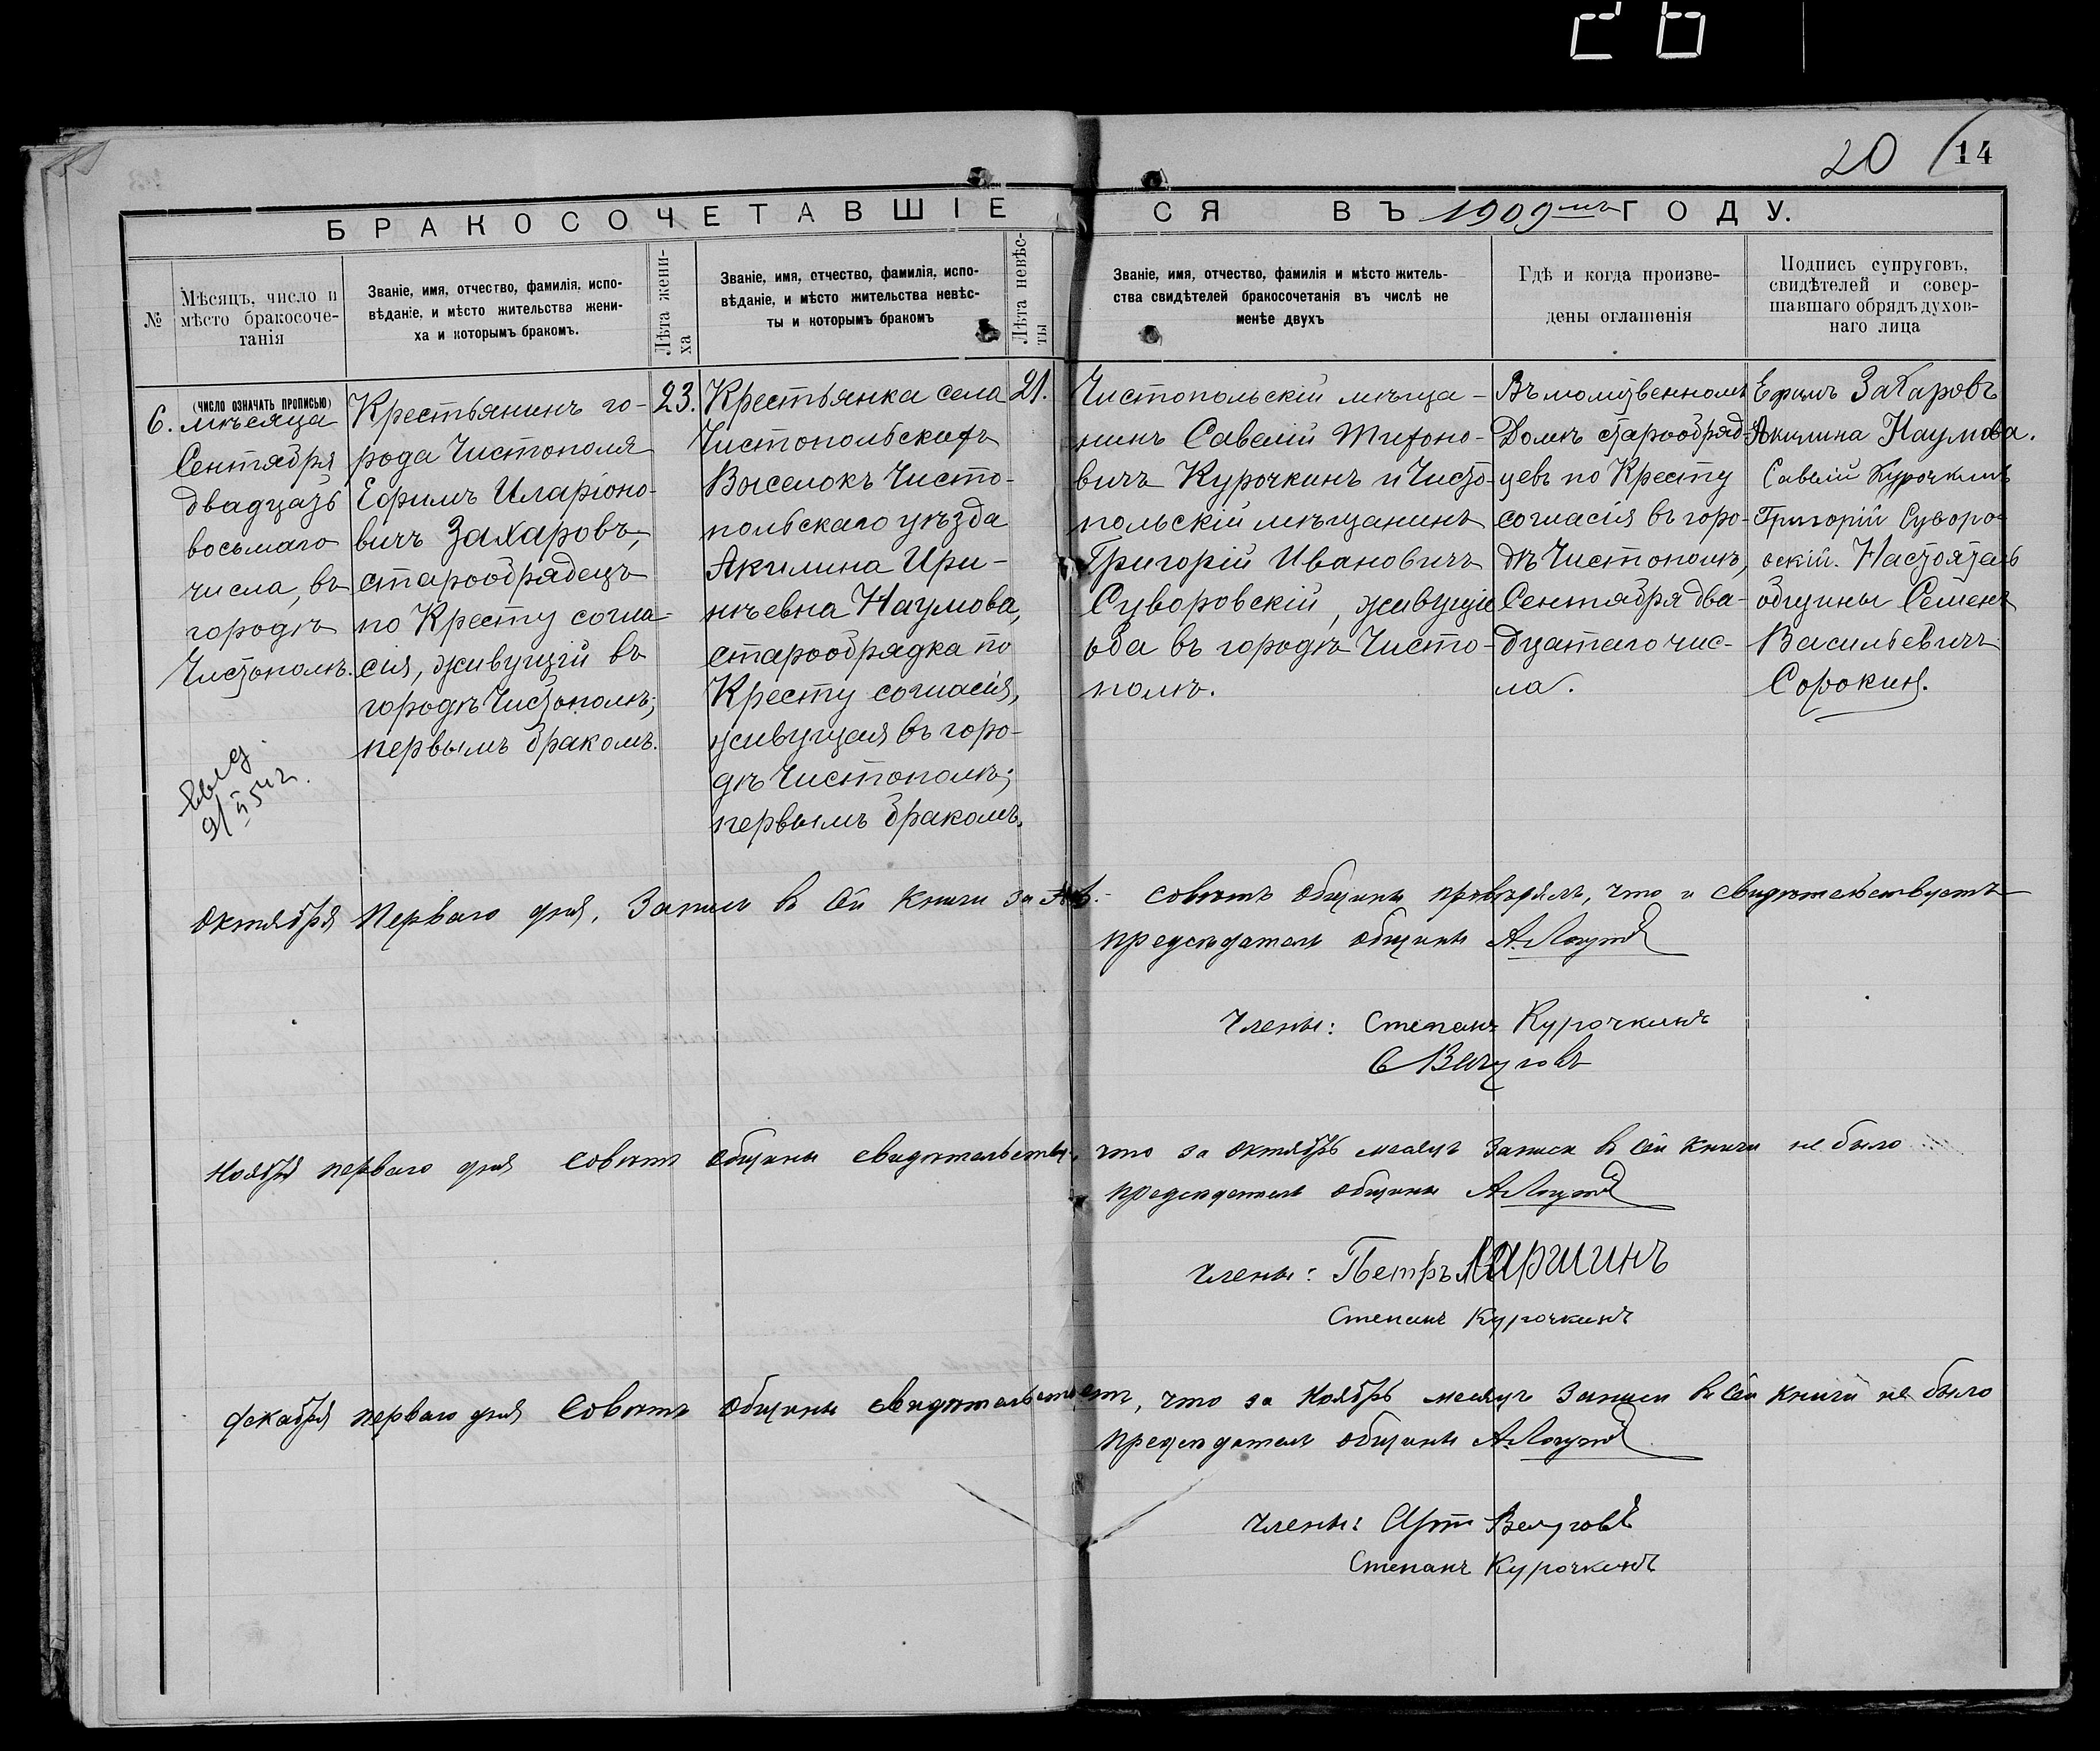 20 14
БРАКОСОЧЕТАВШІЕСЯ ВЪ 1909мъ ГОДУ.
№
Мѣсяцъ, число и
мѣсто бракосоче-
танія
Званіе, имя, отчество, фамилія, испо-
вѣданіе, и мѣсто жительства жени-
ха и которымъ бракомъ.
Лѣта жени-
ха
Званіе, имя, отчество, фамилія, испо-
вѣданіе, и мѣсто жительства невѣс-
ты и которымъ бракомъ
Лѣта невѣс-
ты
Званіе, имя, отчество, фамилія и мѣсто житель-
ства свидѣтелей бракосочетанія въ числѣ не
менѣе двухъ
Гдѣ и когда произве-
дены оглашенія
Подпись супруговъ,
свидѣтелей и совер-
шавшаго обрядъ духов-
наго лица
(число означать прописью)
6.
мѣсяца
Сентября
двадцать
восьмаго
числа, въ
городѣ
Чистополѣ.
Крестьянинъ го-
рода Чистополя
Ефимъ Иларіоно-
вичъ Захаровъ,
старообрядецъ
по Кресту согла-
сія, живущій въ
городѣ Чистополѣ;
первымъ бракомъ.
23.
Крестьянка села
Чистопольскихъ
Выселокъ Чисто-
польскаго уѣзда
Акилина Ири-
нѣевна Наумова,
старообрядка по
Кресту согласія,
живущая въ горо-
дѣ Чистополѣ;
первымъ бракомъ.
21.
Чистопольскій мѣща-
нинъ Савелій Тифоно-
вичъ Курочкинъ и Чисто-
польскій мѣщанинъ
Григорій Ивановичъ
Суворовскій, живущіе
оба въ городѣ Чисто-
полѣ.
Въ молитвенномъ
Домѣ старообряд-
цевъ по Кресту
согласія въ горо-
дѣ Чистополѣ,
Сентября два-
дцатаго чис-
ла.
Ефимъ Захаровъ
Акилина Наумова.
Савелій Курочкинъ
Григорій Суворо-
вскій. Настоятель
общины Семенъ
Васильевичъ
Сорокин.
9/II 54 г.
Октября Перваго дня, Запись в сей книги за Совѣтъ общины провѣрялъ, что и свидѣтельствуетъ
председатель общины
Члены: Степанъ Курочкинъ
Ноября перваго дня Совѣтъ общины свидѣтельству, что за Октябрь месяцъ Записи в сей книги не было
председатель общины
Члены: Петръ Ларшинъ
Степанъ Курочкинъ
Декабря перваго дня Совѣтъ общины свидѣтельствуетъ, что за Ноябрь месяцъ Записи в сей книги не было
председатель общины
Члены:
Степанъ Курочкинъ